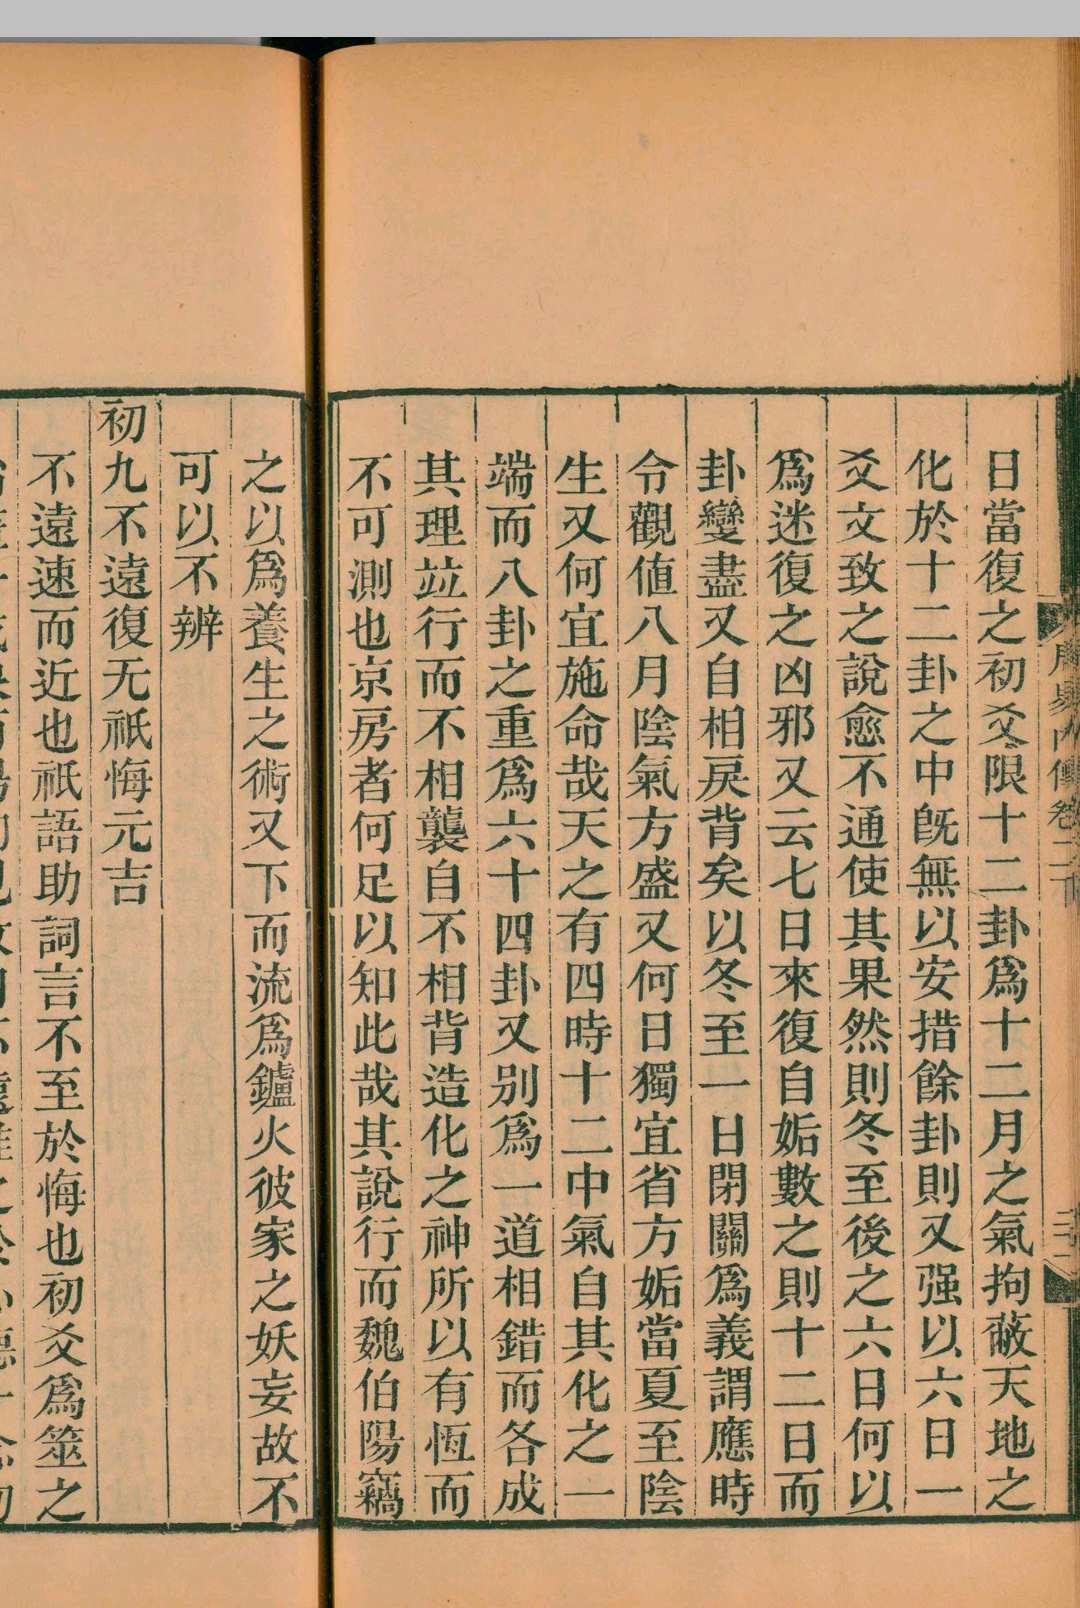 周易內傳卷二下
日當復之初爻限十二卦爲十二月之氣拘蔽天地之
化於十二卦之中旣無以安措餘卦則又强以六日一
爻文致之說愈不通使其果然則冬至後之六日何以
爲迷復之凶邪又云七日來復自姤數之則十二日而
卦變盡又自相戾背矣以冬至一日閉關爲義謂應時
令觀値八月陰氣方盛又何日獨宜省方姤當夏至陰
生又何宜施命哉天之有四時十二中氣自其化之一
端而八卦之重爲六十四卦又别爲一道相錯而各成
其理竝行而不相襲自不相背造化之神所以有恆而
不可測也京房者何足以知此哉其說行而魏伯陽竊
之以爲養生之術又下而流爲鑪火彼家之妖妄故不
可以不辨
初九不遠復无祇悔元吉
不遠速而近也祇語助詞言不至於悔也初爻爲筮之